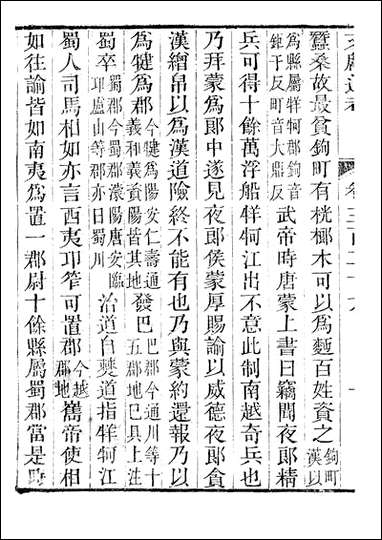 蠶桑故最貧鉤町有桄榔木可以為麪百姓資之鉤町漢以
為縣屬牂牁郡鉤音鉅于反町音大鼎反武帝時唐蒙上書曰竊聞夜郎精
兵可得十餘萬浮船牂牁江出不意此制南越奇兵也
乃拜蒙為郎中遂見夜郎侯蒙厚賜諭以威德夜郎貪
漢繒帛以為漢道險終不能有也乃與蒙約還報乃以
為犍為郡今犍為陽安仁壽通義和義資陽皆其地發巴巴郡今通川等十五郡地巳具上注
蜀卒蜀郡今蜀郡濛陽唐安臨卭廬山等郡亦曰蜀川治道自僰道指牂牁江
蜀人司馬相如亦言西夷卭筰可置郡今越巂郡地帝使相
如往諭皆如南夷為置一郡尉十餘縣屬蜀郡當是時